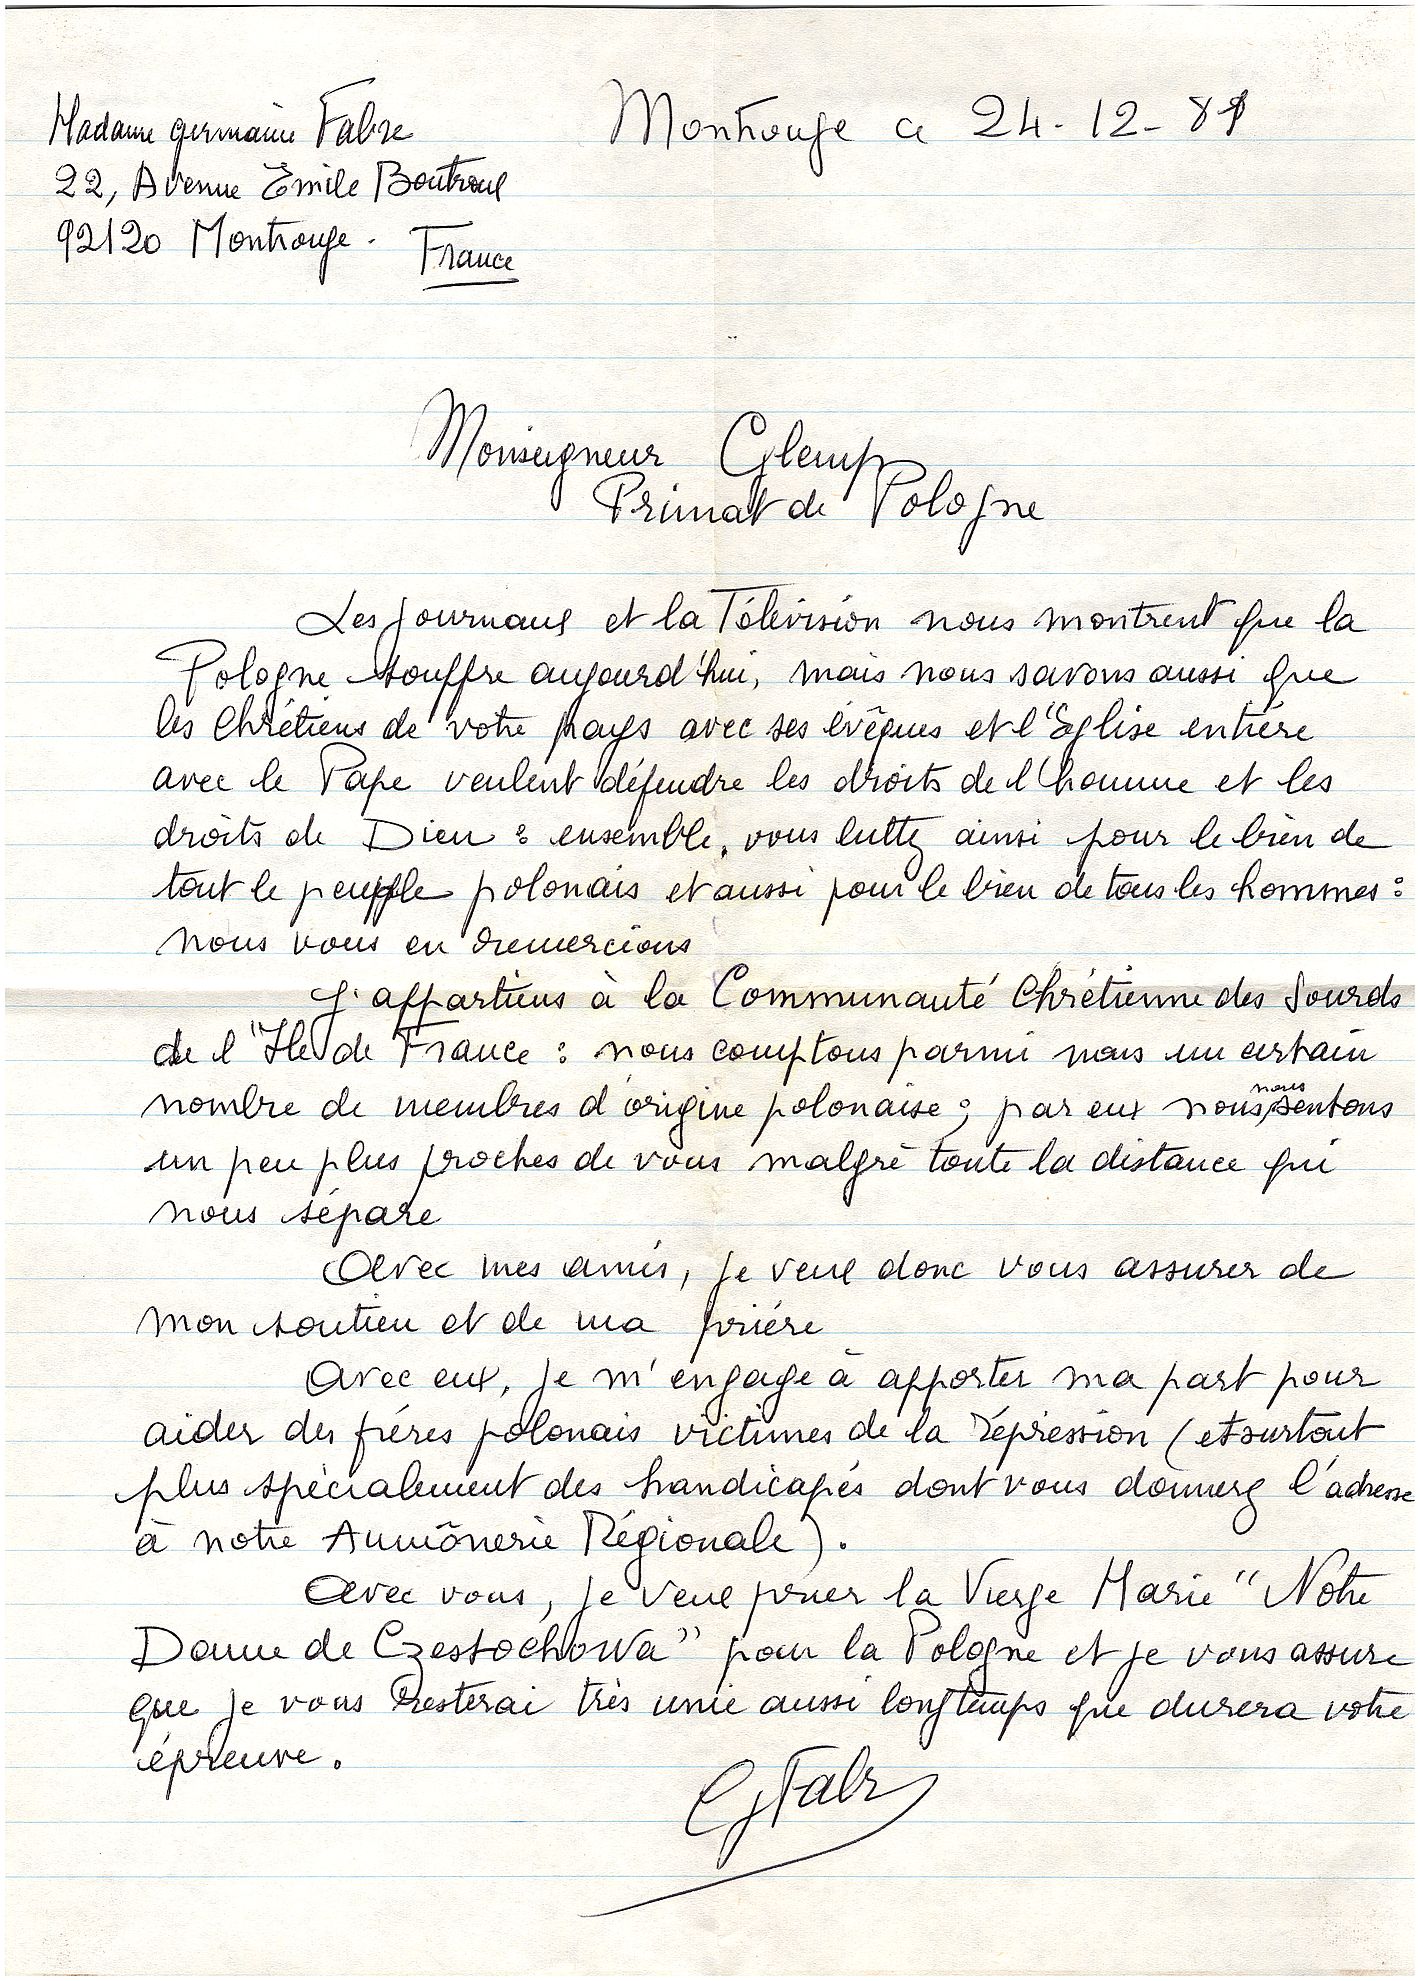 Madame germaine Fabre
22, Avenue Emile Boutroux
92120 Montrouge. France
Montrouge ce 24-12-81
Monseigneur Glemp
Primat de Pologne
Les journaux et la Télévision nous montrent que la
Pologne souffre aujourd'hui, mais nous savons aussi que
les Chrétiens de votre pays avec ses évêques et l'Eglise entière
avec le Pape veulent défendre les droits de l'homme et les
droits de Dieu : ensemble, vous luttez ainsi pour le bien de
tout le peuple polonais et aussi pour le bien de tous les hommes :
nous vous en remercions
J'appartiens à la Communauté Chrétienne des Sourds
de l'Ile de France : nous comptons parmi nous un certain
nombre de membres d'origine polonaise ; par eux nous nous sentons
un peu plus proches de vous malgré toute la distance qui
nous sépare
Avec mes amis, je veux donc vous assurer de
mon soutien et de ma prière
Avec eux, je m'engage à apporter ma part pour
aider des frères polonais victimes de la répression (et surtout
plus spécialement des handicapés dont vous donnerez l'adresse
à notre Aumônerie Régionale).
Avec vous, je veux prier la Vierge Marie "Notre
Dame de Czestochowa" pour la Pologne et je vous assure
que je vous resterai très unie aussi longtemps que durera votre
épreuve.
G Fabre